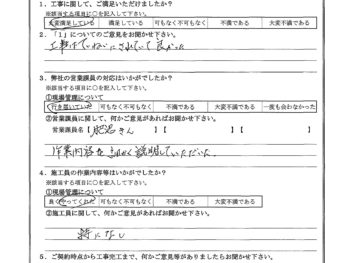 1．工事に関して、ご満足いただけましたか？
※該当する項目に○を記入して下さい。
大変満足している 満足している 可もなく不可もなく 不満である 大変不満である
2．「1」についてのご意見をお聞かせ下さい。
工事はていねいにされていて良かった
3．弊社の営業課員の対応はいかがでしたか？
※該当する項目に○を記入して下さい。
①現場管理について
行き届いていた 可もなく不可もなく 不満である 大変不満である 一度も会わなかった
②営業課員に関して、何かご意見があればお聞かせ下さい。
営業課員名【 さん 】【 】【 】
作業内容を細かく説明していただいた。
4．施工員の作業内容等はいかがでしたか？
※該当する項目に○を記入して下さい。
①現場管理について
良くやってくれた 可もなく不可もなく 不満である 大変不満である
②施工員に関して、何かご意見があればお聞かせ下さい。
特になし
5．ご契約時点から工事完工まで、何かご意見等がありましたらお聞かせ下さい。